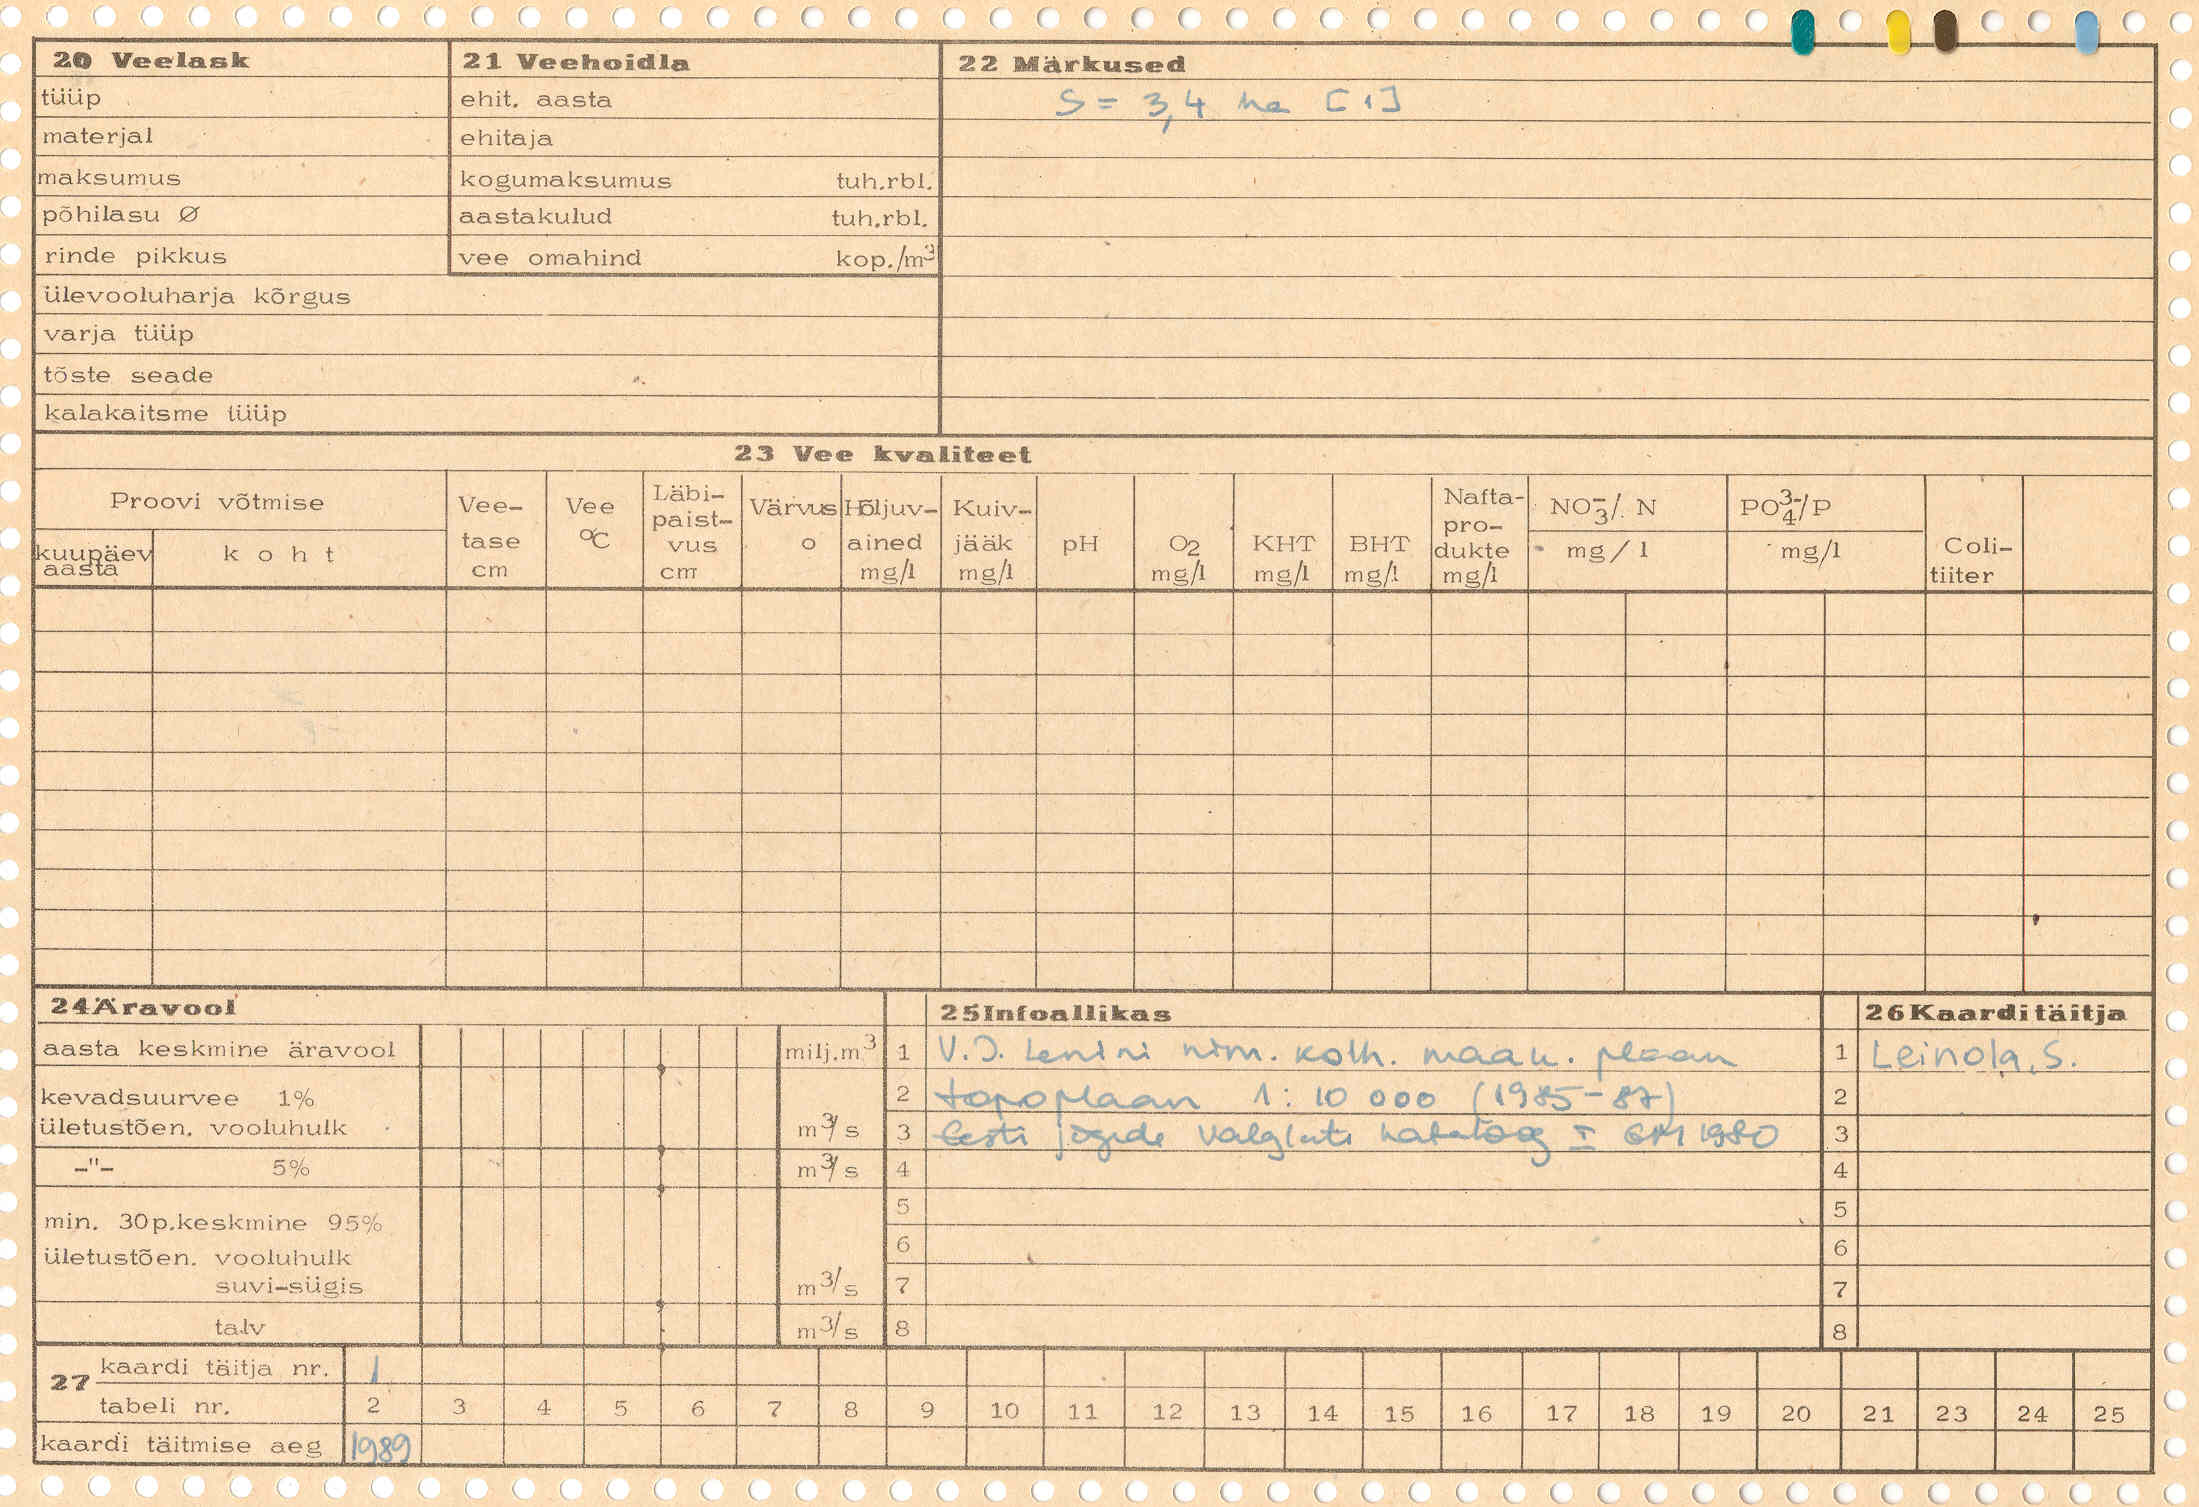 20 Veelask
tüüp
materjal
maksumus
põhilasu Ø
rinde pikkus
ülevooluharja kõrgus
varja tüüp
tõste seade
kalakaitsme tüüp
21 Veehoidla
ehit. aasta
ehitaja
kogumaksumus tuh.rbl.
aastakulud tuh.rbl.
vee omahind kop./m³
22 Märkused
S = 3,4 ha [1]
23 Vee kvaliteet
Proovi võtmise
kuupäev aasta
koht
Vee-
tase
cm
Vee
°C
Läbi-
paist-
vus
cm
Värvus
o
Hõljuv-
ained
mg/l
Kuiv-
jääk
mg/l
pH
O₂
mg/l
KHT
mg/l
BHT
mg/l
Nafta-
pro-
dukte
mg/l
NO₃⁻/N
mg/l
PO₄³⁻/P
mg/l
Coli-
tiiter
24 Äravool
aasta keskmine äravool milj.m³
kevadsuurvee 1%
ületustõen. vooluhulk m³/s
-"- 5% m³/s
min. 30p.keskmine 95%
ületustõen. vooluhulk
suvi-sügis m³/s
talv m³/s
25 Infoallikas
1 V.I. Lenini nim. kolh. maak. plaan
2 topoplaan 1:10 000 (1985-87)
3 Eesti jõgede valglate kataloog I 1980
4
5
6
7
8
26 Kaarditäitja
1 Leinola, S.
2
3
4
5
6
7
8
27
kaardi täitja nr. 1
tabeli nr. 2 3 4 5 6 7 8 9 10 11 12 13 14 15 16 17 18 19 20 21 23 24 25
kaardi täitmise aeg 1989